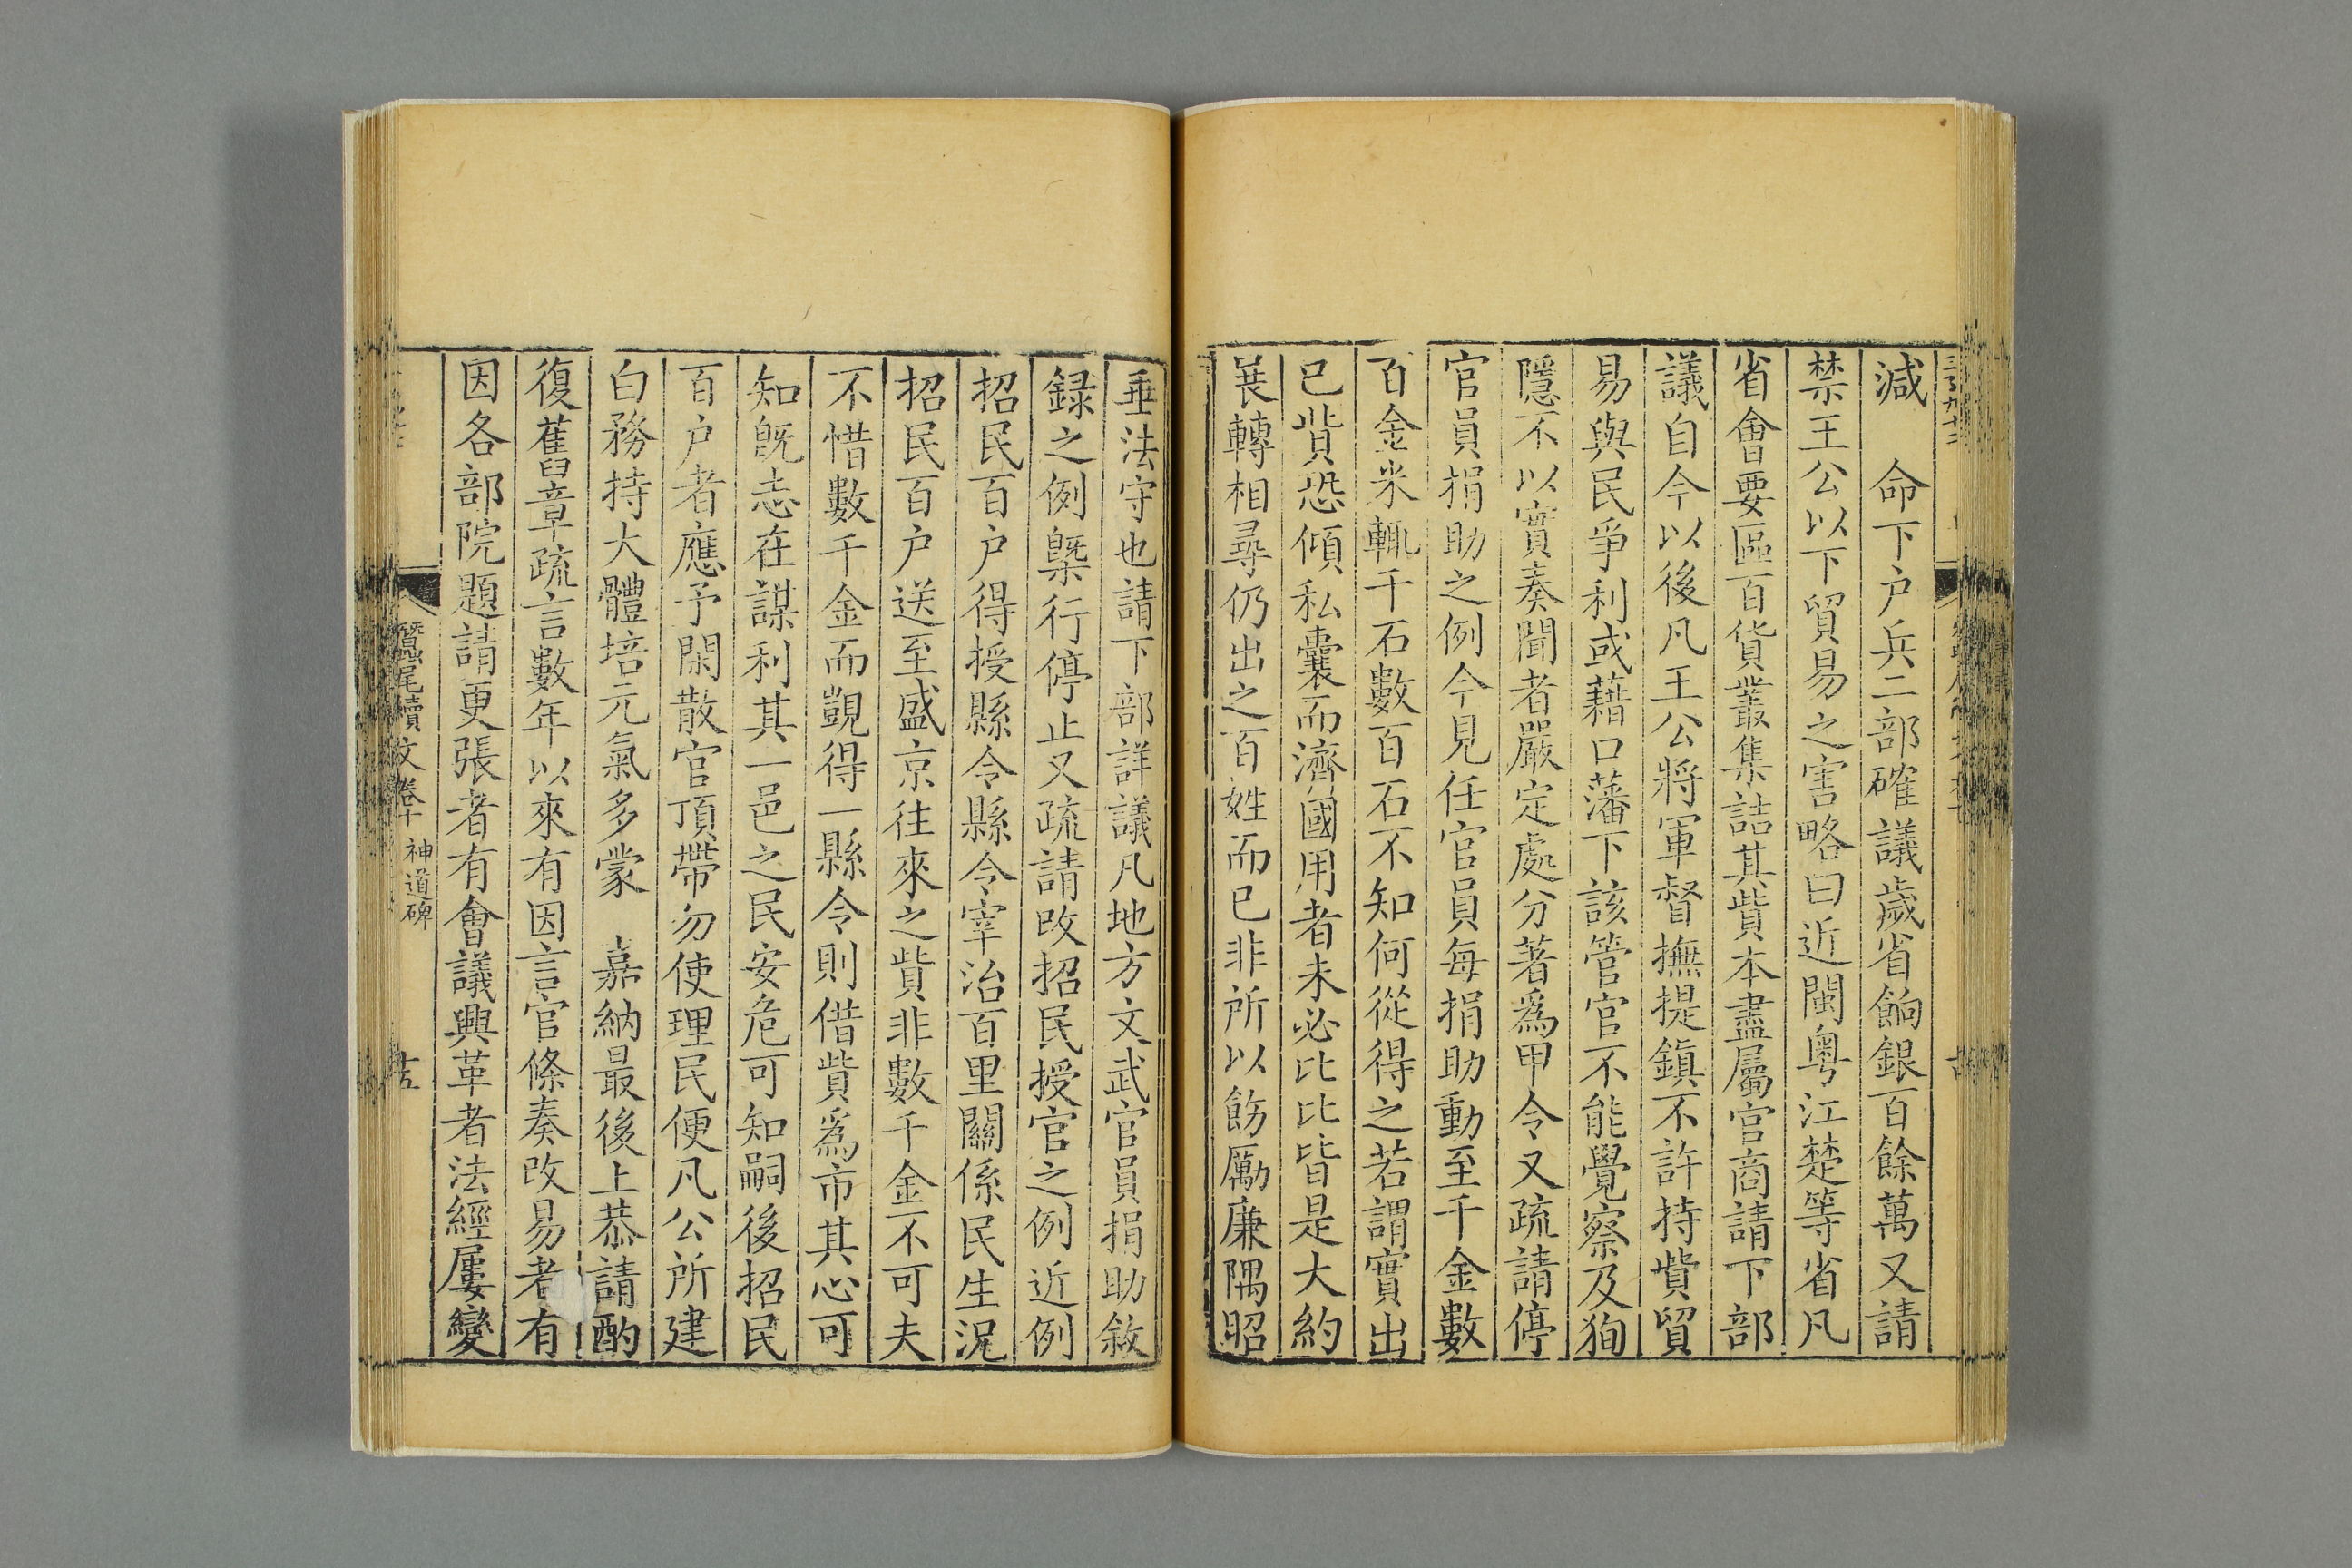 減　命下户兵二部確議歲省餉銀百餘萬又請
禁王公以下貿易之害略曰近閩粤江楚等省凡
省會要區百貨叢集詰其貲本盡屬官商請下部
議自今以後凡王公將軍督撫提鎮不許持貲貿
易與民爭利或藉口藩下該管官不能覺察及狥
隱不以實奏聞者嚴定處分著爲甲令又疏請停
官員捐助之例今見任官員每捐助動至千金數
百金米輒千石數百石不知何從得之若謂實出
已貲恐傾私囊而濟國用者未必比比皆是大約
展轉相尋仍出之百姓而已非所以飭厲廉隅昭
垂法守也請下部詳議凡地方文武官員捐助敘
録之例槩行停止又疏請改招民授官之例近例
招民百户得授縣令縣令宰治百里關係民生況
招民百户送至盛京往來之貲非數千金不可夫
不惜數千金而覬得一縣令則借貲爲市其心可
知既志在謀利其一邑之民安危可知嗣後招民
百户者應予閑散官頂帶勿使理民便凡公所建
白務持大體培元氣多蒙　嘉納最後上恭請酌
復舊章疏言數年以來有因言官條奏改易者有
因各部院題請更張者有會議興革者法經屢變
蠶尾續文卷十　神道碑　十五